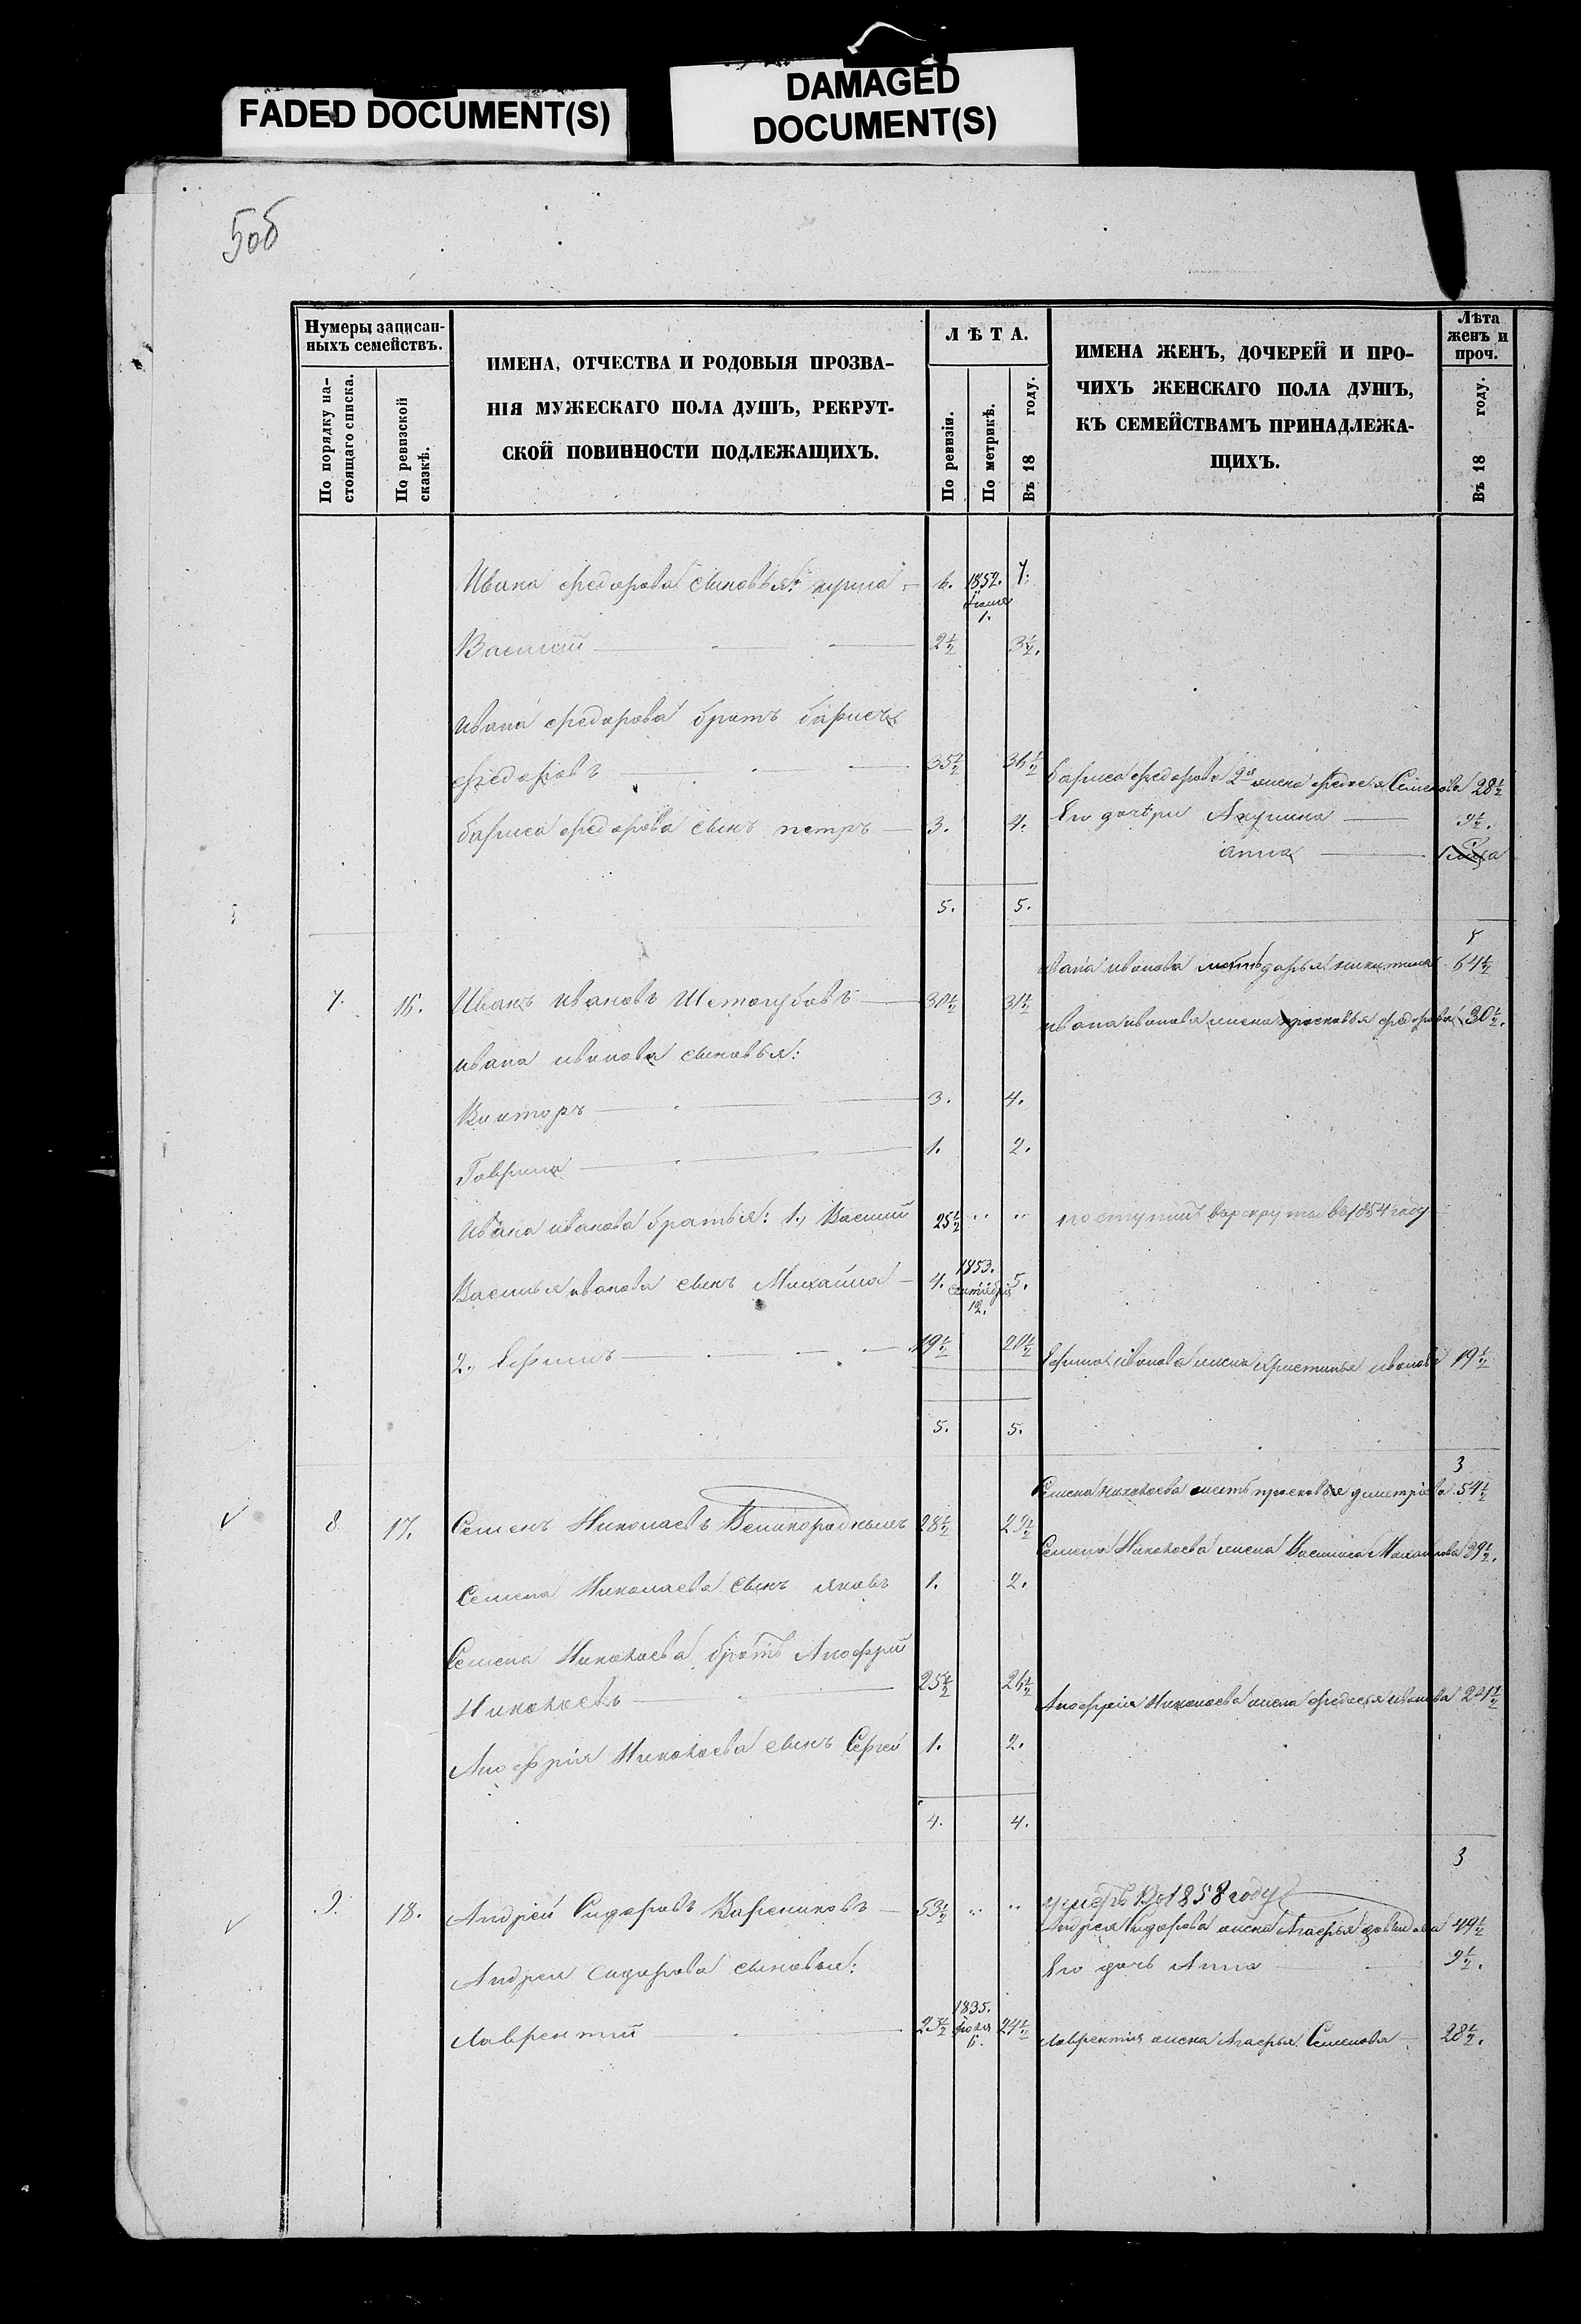 FADED DOCUMENT(S)
DAMAGED
DOCUMENT(S)
506
Нумеры записан-
ныхъ семействъ.
По порядку на-
стоящаго списка.
По ревизской
сказкѣ.
ИМЕНА, ОТЧЕСТВА И РОДОВЫЯ ПРОЗВА-
НІЯ МУЖЕСКАГО ПОЛА ДУШЪ, РЕКРУТ-
СКОЙ ПОВИННОСТИ ПОДЛЕЖАЩИХЪ.
ЛѢТА.
По ревизіи.
По метрикѣ.
Въ 18 году.
ИМЕНА ЖЕНЪ, ДОЧЕРЕЙ И ПРО-
ЧИХЪ ЖЕНСКАГО ПОЛА ДУШЪ,
КЪ СЕМЕЙСТВАМЪ ПРИНАДЛЕЖА-
ЩИХЪ.
Лѣта
женъ и
проч.
Въ 18 году.
Ивана федорова сыновья: 6. 1852. 7.
1.
Василий 2½ 3½.
ивана федорова братъ барисъ
федоровъ 35½ 36½ бариса федорова 2я жена федосья Семенова 28½
бариса федорова сынъ петръ 3. 4. Его дочери Акулина 9½.
анна
5. 5.
5
ивана иванова мать дарья никитина 64½
7. 16. Иванъ ивановъ 30½ 31½
ивана иванова жена прасковья федорова 30½.
ивана иванова сыновья:
Викторъ 3. 4.
Гаврила 1. 2.
Ивана иванова братья: 1., Василий 25½ " " поступилъ в рекруты въ 1854 году
Василья иванова сынъ Михайла 4. 1853. 5.
сентября
12.
2., Ефимъ 19½ 20½ Ефима иванова жена христинья иванова 19½
5. 5.
3
Семена николаева мать прасковья дмитріева 54½
8 17. Семенъ Николаевъ 28½ 29½
Семена Николаева жена Василиса Михайлова 39½.
Семена Николаева сынъ яковъ 1. 2.
Семена Николаева братъ Анофрій
Николаевъ 25½ 26½ Анофрія Николаева жена федосья иванова 24½
Анофрія Николаева сынъ Сергей 1. 2.
4. 4.
3
9. 18. Андрей Сидоровъ Варениковъ 53½ " " умеръ въ 1858 году
Андрея Сидорова жена Агафья 49½
Андрея Сидорова сыновья: Его дочь Анна 9½.
Лаврентий 23½ 1835. 24½ Лаврентия жена Агафья Семенова 28½.
6.